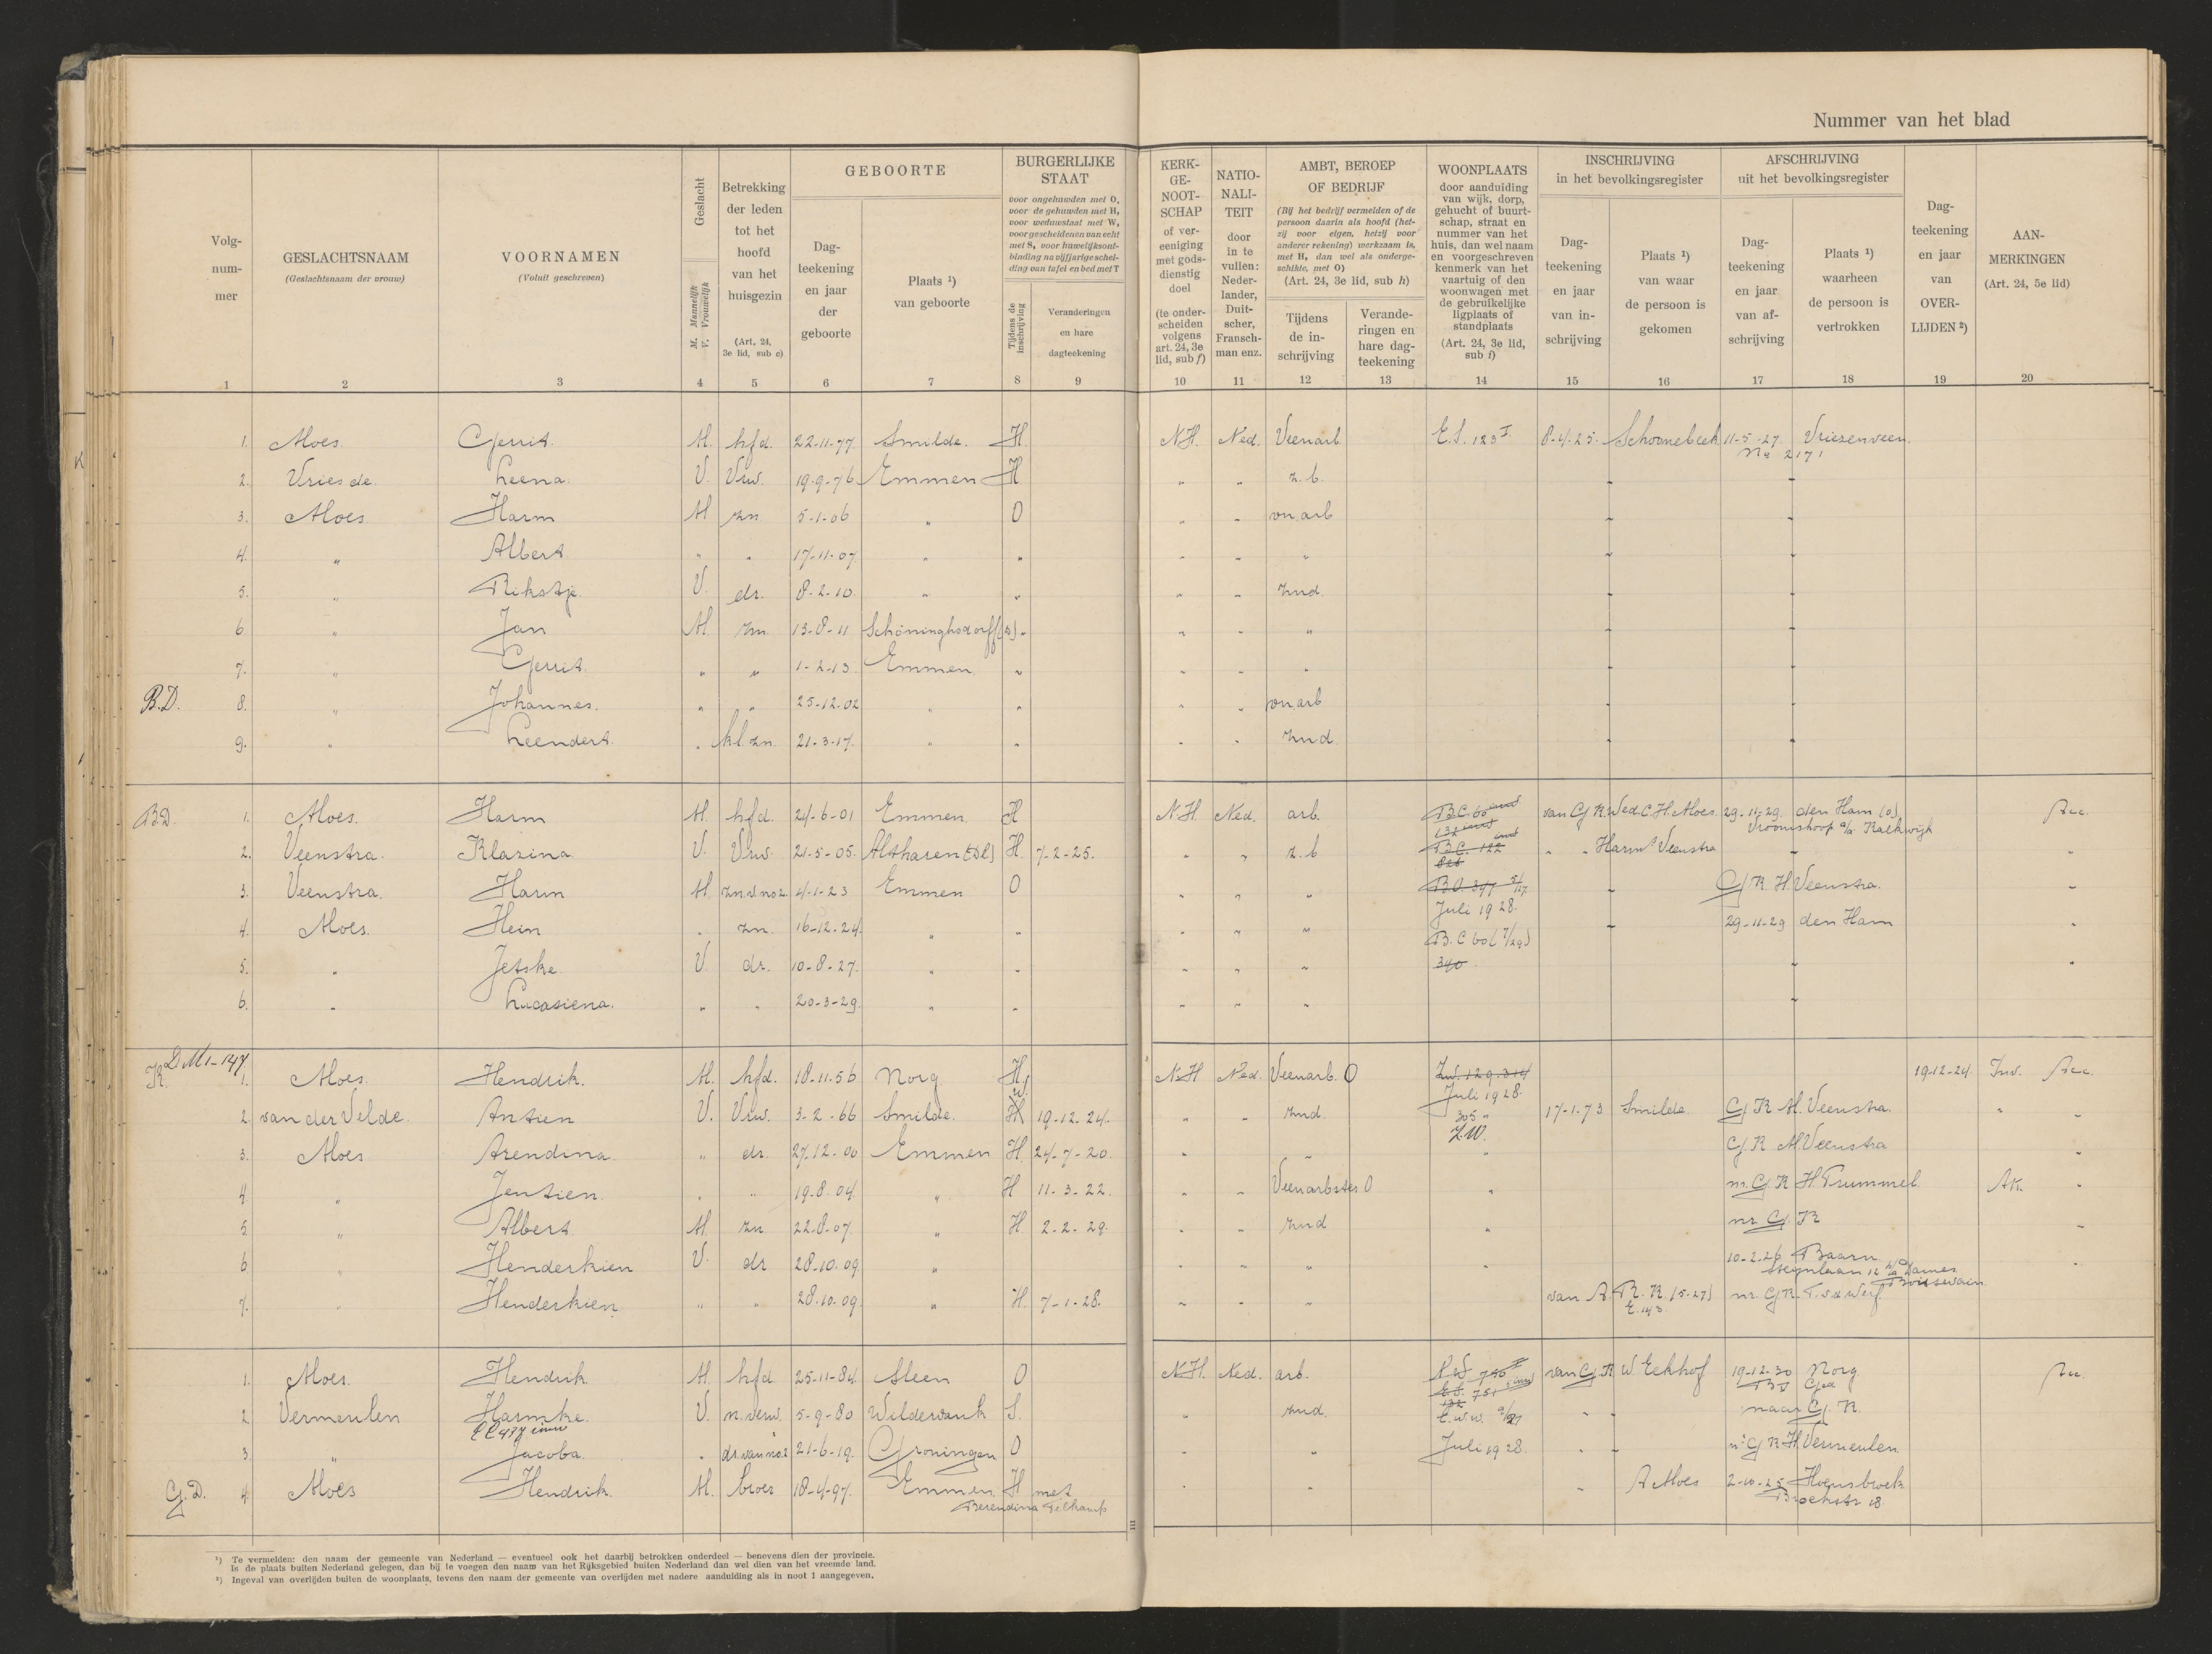 Nummer van het blad
Volg-
num-
mer
GESLACHTSNAAM
(Geslachtsnaam der vrouw)
VOORNAMEN
(Voluit geschreven)
Geslacht
M. Mannelijk
V. Vrouwelijk
Betrekking
der leden
tot het
hoofd
van het
huisgezin
(Art. 24,
3e lid, sub c)
GEBOORTE
Dag-
teekening
en jaar
der
geboorte
Plaats ¹)
van geboorte
BURGERLIJKE
STAAT
voor ongehuwden met O,
voor de gehuwden met H,
voor weduwstaat met W,
voor gescheidenen van echt
met S, voor huwelijksont-
binding na vijfjarige schei-
ding van tafel en bed met T
Tijdens de
inschrijving
Veranderingen
en hare
dagteekening
KERK-
GE-
NOOT-
SCHAP
of ver-
eeniging
met gods-
dienstig
doel
(te onder-
scheiden
volgens
art. 24, 3e
lid, sub f)
NATIO-
NALI-
TEIT
door
in te
vullen:
Neder-
lander,
Duit-
scher,
Fransch-
man enz.
AMBT, BEROEP
OF BEDRIJF
(Bij het bedrijf vermelden of de
persoon daarin als hoofd (het-
zij voor eigen, hetzij voor
anderer rekening) werkzaam is,
met H, dan wel als onderge-
schikte, met O)
(Art. 24, 3e lid, sub h)
Tijdens
de in-
schrijving
Verande-
ringen en
hare dag-
teekening
WOONPLAATS
door aanduiding
van wijk, dorp,
gehucht of buurt-
schap, straat en
nummer van het
huis, dan wel naam
en voorgeschreven
kenmerk van het
vaartuig of den
woonwagen met
de gebruikelijke
ligplaats of
standplaats
(Art. 24, 3e lid,
sub i)
INSCHRIJVING
in het bevolkingsregister
Dag-
teekening
en jaar
van in-
schrijving
Plaats ¹)
van waar
de persoon is
gekomen
AFSCHRIJVING
uit het bevolkingsregister
Dag-
teekening
en jaar
van af-
schrijving
Plaats ¹)
waarheen
de persoon is
vertrokken
Dag-
teekening
en jaar
van
OVER-
LIJDEN ²)
AAN-
MERKINGEN
(Art. 24, 5e lid)
1 2 3 4 5 6 7 8 9 10 11 12 13 14 15 16 17 18 19 20
1. Moes. Gerrit. M. hfd. 22-11-77. Smilde. H. N.H. Ned. Veenarb. E.S. 123 I. 8-4-25. Schoonebeek 11-5-27. Vriezenveen.
2. Vries de. Leena. V. Vrw. 19-9-76 Emmen H " " z.b. "
3. Moes Harm M zn 5-1-06 " O " " vn arb "
4. " Albert " " 17-11-07. " " " " " "
5. " Rikstje. V. dr. 8-2-10. " " " " znd. "
6 " Jan M. zn. 13-8-11 Schöninghsdorff(D) " " " " "
7. " Gerrit. " " 1-2-13. Emmen " " " " "
B.D. 8. " Johannes. " " 25-12-02 " " " " vn arb "
9. " Leendert. " kl. zn. 21-3-17. " " " " znd. "
B.D. 1. Moes. Harm M. hfd. 24-6-01 Emmen. H N.H. Ned. arb. B.C. 60 van G.K. Wed. C.H. Moes. 29-11-29. den Ham (O)
Vroomshoop a/d Kalkwijk
2. Veenstra. Klazina V. Vrw. 21-5-05. Altharen (Dl) H. 7-2-25. " " z.b B.C. 122 " " Harm Veenstra "
3. Veenstra. Harm M. zn. v. no 2. 4-1-23 Emmen O " " " B.O. 347 " G.K. H. Veenstra. "
Juli 1928.
4. Moes. Hein " zn. 16-12-24. " " " " " B.C 60 (7/29) " 29-11-29 den Ham "
5. " Jetske. V. dr. 10-8-27. " " " " " 340 " "
6. " Lucasiena. " " 20-3-29. " " " " " "
K. D.M 1-147
1. Moes. Hendrik. M. hfd. 18-11-56 Norg H. N.H Ned. Veenarb. O Zw. 129. 314 19-12-24. Inv.
Juli 1928.
2. van der Velde. Antien V. Vrw. 3-2-66 Smilde. H W. 19-12-24. " " znd. 305 " 17-1-73 Smilde G.K M. Veenstra. " "
Z.W.
3. Moes Arendina. " dr. 27.12-00 Emmen H. 24-7-20. " " " G.K M Veenstra "
4. " Jentien. " " 19.8.04. " H 11-3-22. " " Veenarbster O " nr. G.K H. Trummel. AK. "
5 " Albert. M. zn 22.8-07. " H. 2-2-29. " " znd " nr. G.K "
6 " Henderkien V. dr 28.10.09 " " " " " 10-2-26 Baarn.
Steynlaan 12 Dames
Boissevain
7. " Henderkien. " " 28.10.09. " H. 7-1-28. " " " van A.K.K (5-27) nr. G.K.
E. 143
1. Moes. Hendrik. M. hfd 25-11-84. Sleen O N.H. Ned. arb. van G.K W Eekhof 19-12-30 Norg
2. Vermeulen Harmke. V. 5-9-80 Wildervank S. " znd. " " naar G.K.
3. " Jacoba. " dr. van no 2 21-6-19. Groningen O " " Juli 1928. " " nr G.K H. Vermeulen
G.D. 4. Moes Hendrik. M. broer 18-4-97. Emmen H met " " " A Moes 2-10-25 Hoensbroek
Berendina Broekstr 18
¹) Te vermelden: den naam der gemeente van Nederland — eventueel ook het daarbij betrokken onderdeel — benevens dien der provincie.
Is de plaats buiten Nederland gelegen, dan bij te voegen den naam van het Rijksgebied buiten Nederland dan wel dien van het vreemde land.
²) Ingeval van overlijden buiten de woonplaats, tevens den naam der gemeente van overlijden met nadere aanduiding als in noot 1 aangegeven.